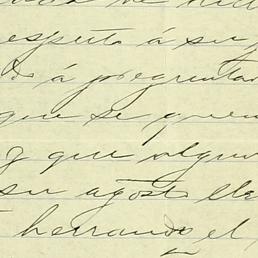 respeto á su
á preguntar
que se que
y que algun
su agosto lle
herrando el